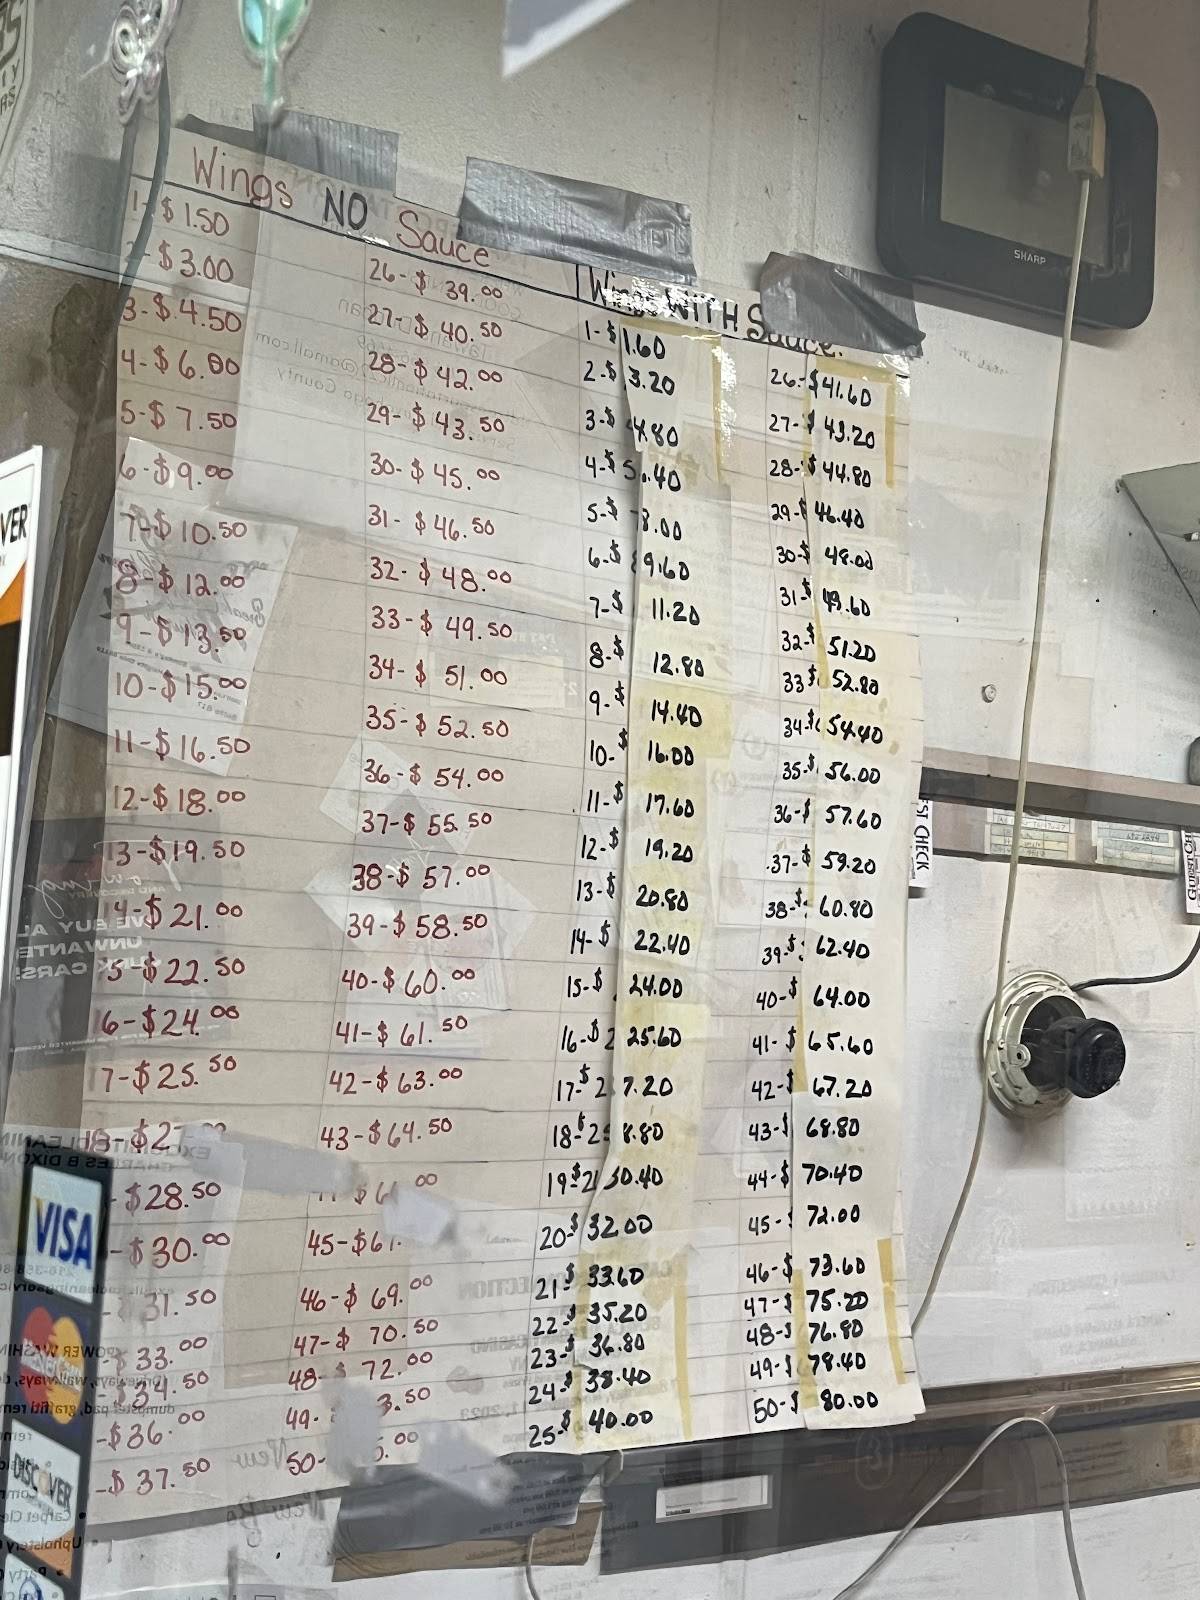 Wings NO Sauce
1-$ 1.50
-$ 3.00
3-$ 4.50
4-$ 6.00
5-$ 7.50
6-$9.00
7-$10.50
8-$12.00
9-$13.50
10-$15.00
11-$16.50
12-$18.00
13-$19.50
14-$21.00
5-$22.50
6-$24.00
7-$25.50
18-$2
-$28.50
-$30.00
31.50
-$33.00
-$34.50
-$36.00
-$37.50
26-$ 39.00
27-$ 40.50
28-$ 42.00
29-$ 43.50
30-$ 45.00
31-$ 46.50
32-$ 48.00
33-$ 49.50
34-$ 51.00
35-$ 52.50
36-$ 54.00
37-$ 55.50
38-$ 57.00
39-$ 58.50
40-$ 60.00
41-$ 61.50
42-$ 63.00
43-$64.50
$6 00
45-$6
46-$ 69.00
47-$ 70.50
48-$ 72.00
49- 3.50
50- .00
Wings WITH Sauce.
1-$ 1.60
2-$ 3.20
3-$ 4.80
4-$ 6.40
5-$ 8.00
6-$ 9.60
7-$ 11.20
8-$ 12.80
9-$ 14.40
10-$ 16.00
11-$ 17.60
12-$ 19.20
13-$ 20.80
14-$ 22.40
15-$ 24.00
16-$2 25.60
17-$2 7.20
18-$2 8.80
19-$ 30.40
20-$ 32.00
21-$ 33.60
22-$ 35.20
23-$ 36.80
24-$ 38.40
25-$ 40.00
26-$41.60
27-$ 43.20
28-$ 44.80
29-$ 46.40
30-$ 48.00
31-$ 49.60
32-$ 51.20
33-$ 52.80
34-$ 54.40
35-$ 56.00
36-$ 57.60
37-$ 59.20
38-$ 60.80
39-$ 62.40
40-$ 64.00
41-$ 65.60
42-$ 67.20
43-$ 68.80
44-$ 70.40
45-$ 72.00
46-$ 73.60
47-$ 75.20
48-$ 76.80
49-$ 78.40
50-$ 80.00
SHARP
EST CHECK
VER
VISA
DISCOVER